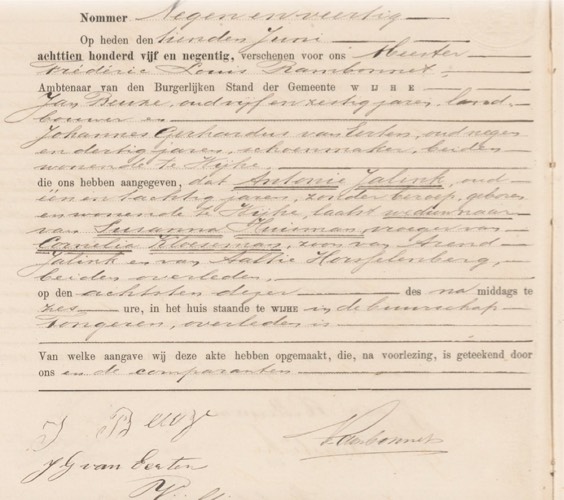 Nommer Negen en veertig
Op heden den tienden Juni
achttien honderd vijf en negentig, verschenen voor ons Meester
Frédéric Louis Rambonnet
Ambtenaar van den Burgerlijken Stand der Gemeente WIJHE
Jan Beuze, oud vijf en zestig jaren, land-
bouwer en
Johannes Gerhardus van Eerten, oud negen
en dertig jaren, schoenmaker, beiden
wonende te Wijhe
die ons hebben aangegeven, dat Antonie Jalink, oud
één en tachtig jaren, zonder beroep, geboren
en wonende te Wijhe, laatst weduwnaar
van Susanna Huisman, vroeger van
Cornelia Kloeseman, zoon van Arend
Jalink en van Aaltje Horstenberg,
beiden overleden,
op den achtsten dezer des na middags te
zes ure, in het huis staande te WIJHE in de buurschap
Tongeren, overleden is
Van welke aangave wij deze akte hebben opgemaakt, die, na voorlezing, is geteekend door
ons en de comparanten
J Beuze
J G van Eerten
Rambonnet